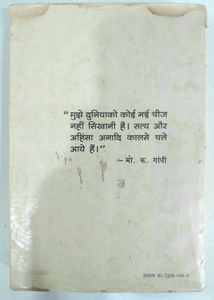 “ मुझे दुनियाको कोई नई चीज
नहीं सिखानी है। सत्य और
अहिंसा अनादि कालसे चले
आये हैं।”
– मो. क. गांधी
ISBN 81-7229-008-8